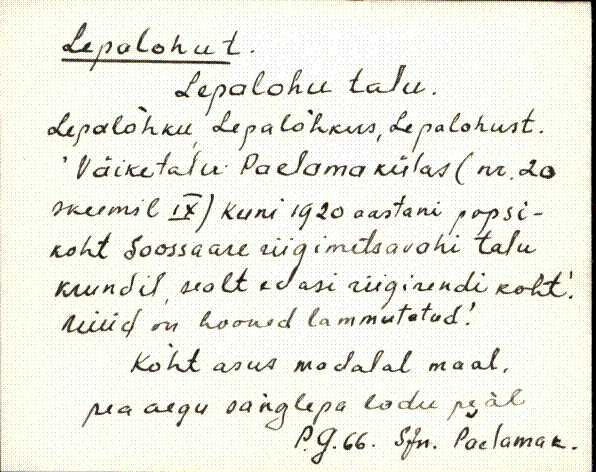 Lepalohut.
Lepalohu talu.
Lepalòhku, Lepalòhkus, Lepalohust.
'Väiketalu Paelama külas (nr. 20
skeemil IX) kuni 1920 aastani popsi-
koht Soossaare riigimetsavahi talu
krundil, sealt edasi riigirendi koht'.
Nüüd on hooned lammutatud'.
Koht asus madalal maal,
pea aegu sanglepa lodu pääl
P.G. 66. Sjn. Paelamaa.